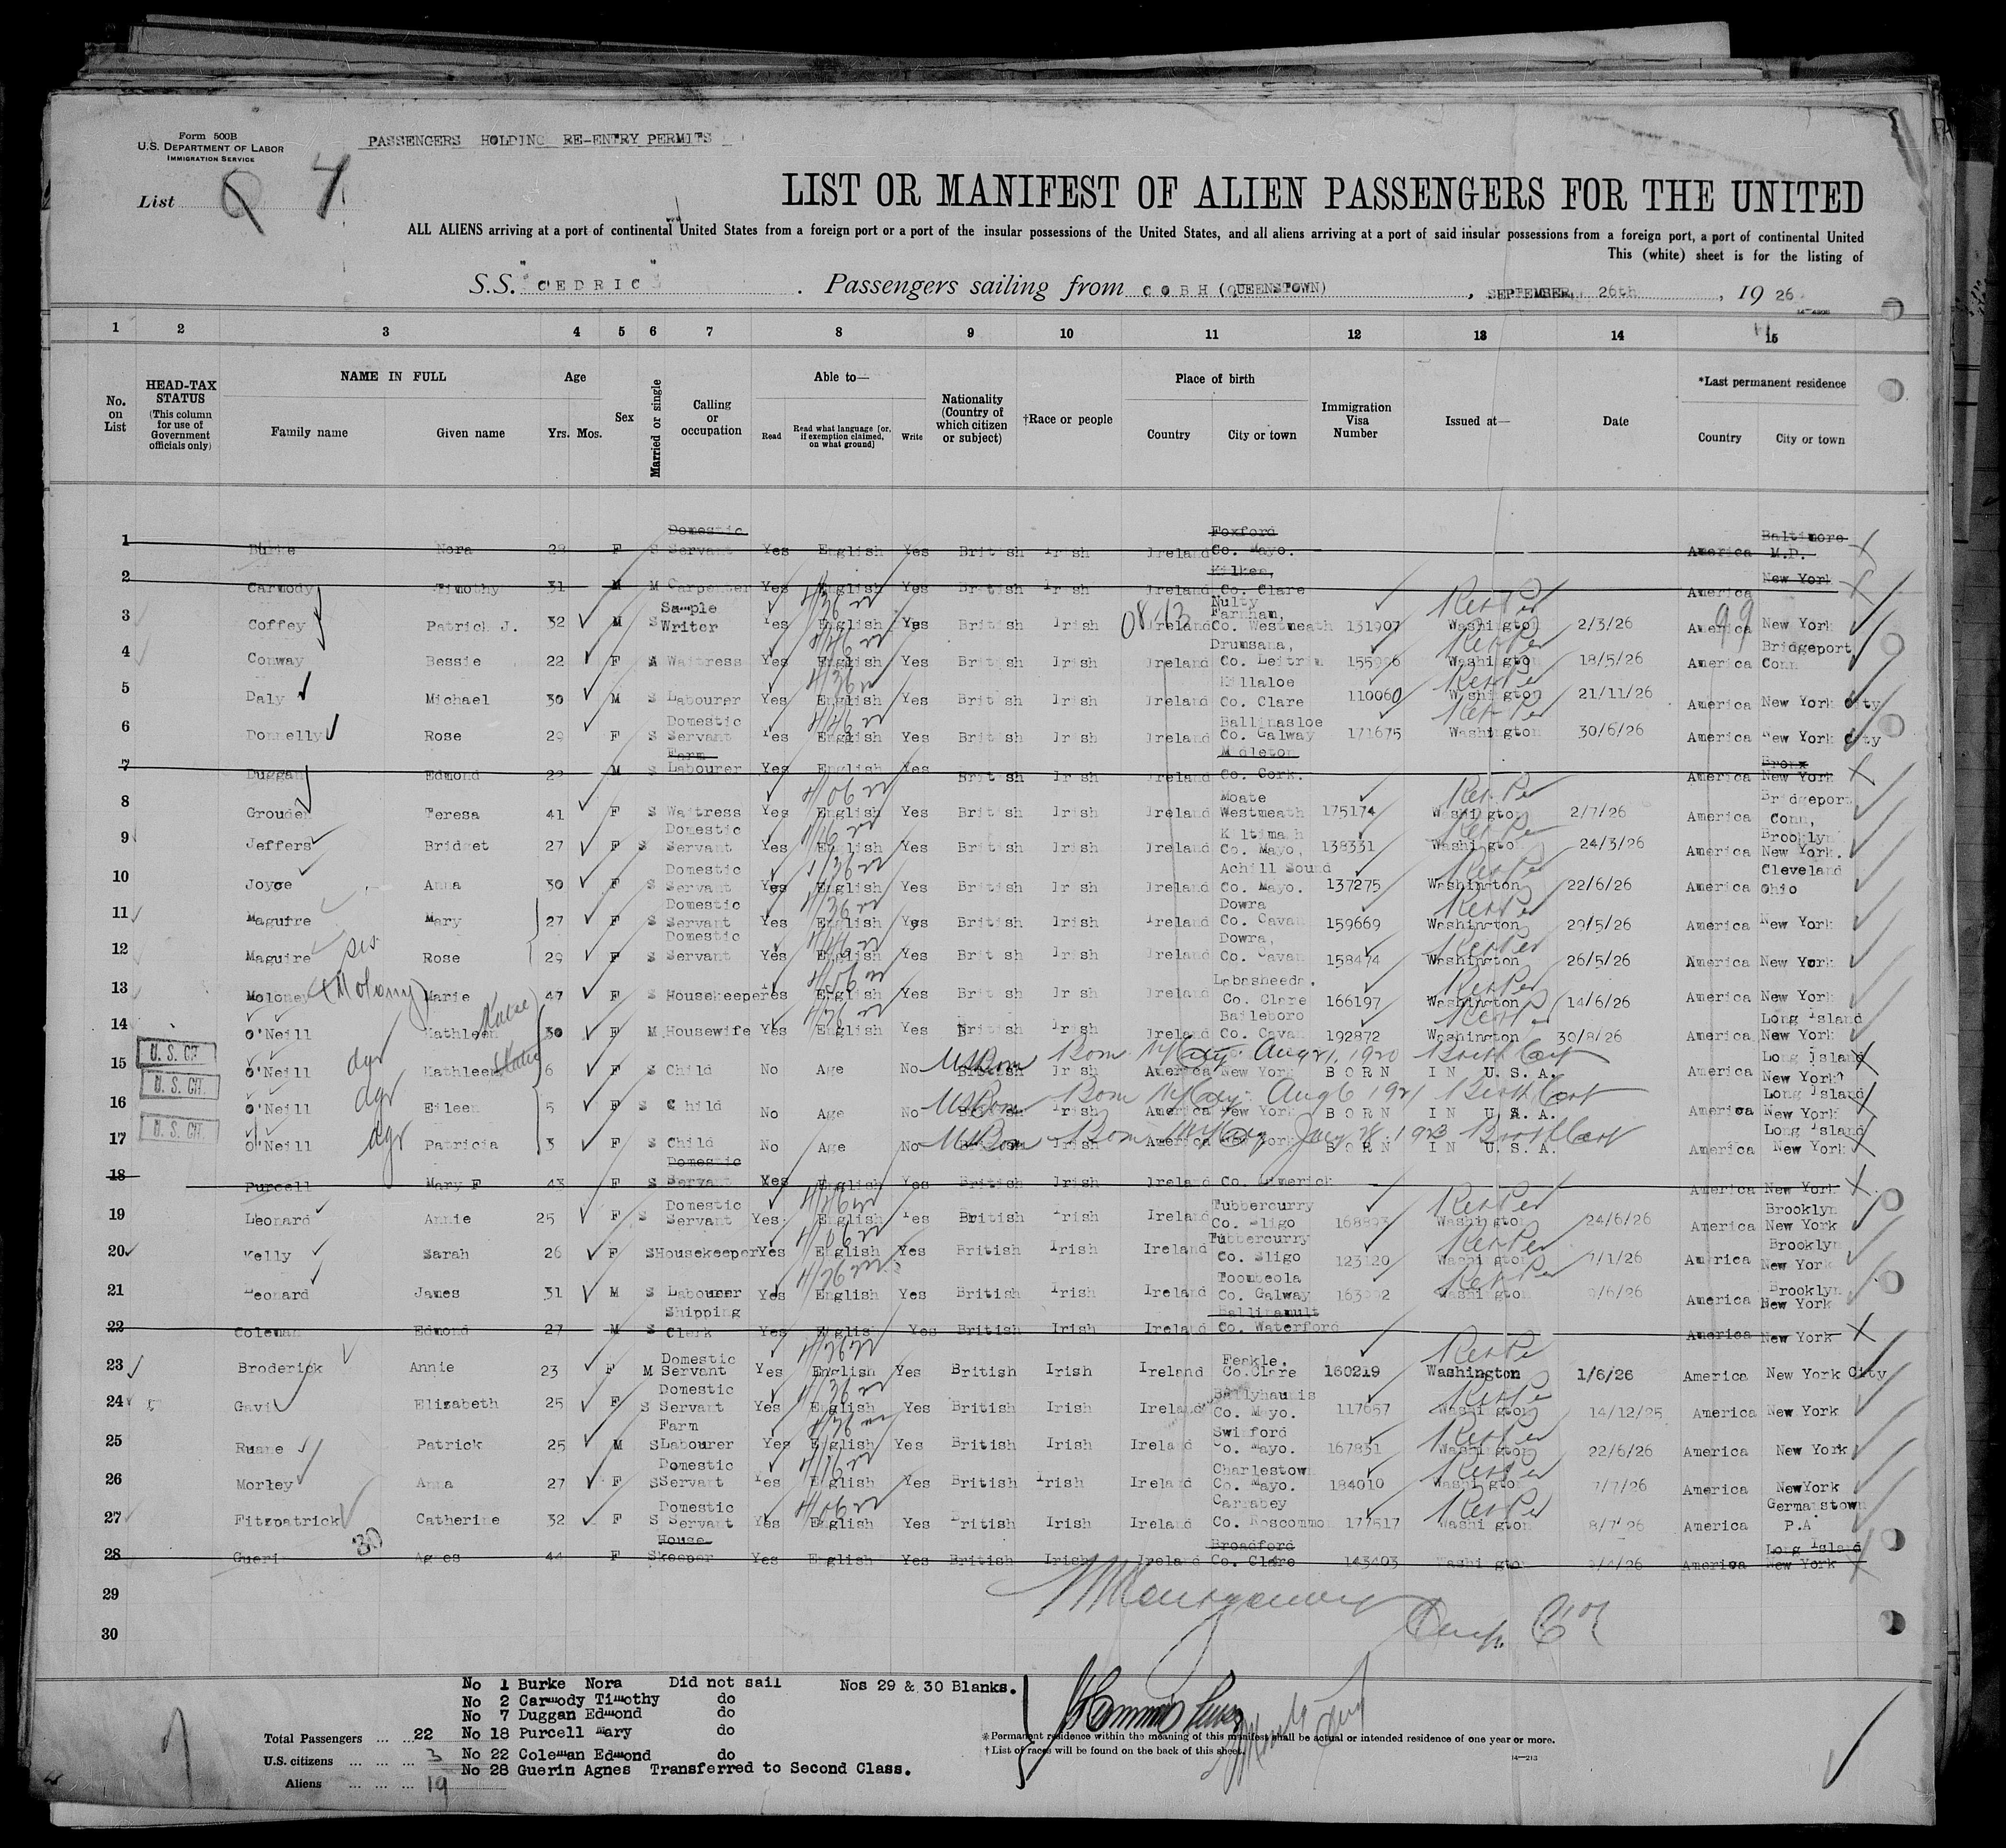 Form 500B
U.S. DEPARTMENT OF LABOR
IMMIGRATION SERVICE
PASSENGERS HOLDING RE-ENTRY PERMITS
List 7
LIST OR MANIFEST OF ALIEN PASSENGERS FOR THE UNITED
ALL ALIENS arriving at a port of continental United States from a foreign port or a port of the insular possessions of the United States, and all aliens arriving at a port of said insular possessions from a foreign port, a port of continental United
This (white) sheet is for the listing of
S.S. "CEDRIC" . Passengers sailing from COBH (QUEENSTOWN) , SEPTEMBER, 26th , 19 26
1 2 3 4 5 6 7 8 9 10 11 12 13 14 15
No. on List
HEAD-TAX STATUS (This column for use of Government officials only)
NAME IN FULL
Family name Given name
Age
Yrs. Mos.
Sex
Married or single
Calling or occupation
Able to—
Read
Read what language [or, if exemption claimed, on what ground]
Write
Nationality (Country of which citizen or subject)
†Race or people
Place of birth
Country City or town
Immigration Visa Number
Issued at—
Date
*Last permanent residence
Country City or town
1 Burke Nora 28 F S Domestic Servant Yes English Yes British Irish Ireland Foxford Co. Mayo. America Baltimore M.D.
2 Carmody Timothy 31 M M Carpenter Yes English Yes British Irish Ireland Kilkee, Co. Clare America New York
3 Coffey Patrick J. 32 M S Sample Writer Yes English Yes British Irish Ireland Farnham, Co. Westmeath 131907 Washington 2/3/26 America New York
4 Conway Bessie 22 F Waitress Yes English Yes British Irish Ireland Drumsana, Co. Leitrim Washington 18/5/26 America Bridgeport Conn
5 Daly Michael 30 M S Labourer Yes English Yes British Irish Ireland Killaloe Co. Clare 110060 Washington 21/11/26 America New York City
6 Donnelly Rose 29 F S Domestic Servant Yes English Yes British Irish Ireland Ballinasloe Co. Galway 171675 Washington 30/6/26 America New York City
7 Duggan Edmond 22 M S Farm Labourer Yes English Yes British Irish Ireland Midleton Co. Cork. America Bronx New York
8 Grouden Teresa 41 F S Waitress Yes English Yes British Irish Ireland Moate Westmeath 175174 Washington 2/7/26 America Bridgeport Conn,
9 Jeffers Bridget 27 F S Domestic Servant Yes English Yes British Irish Ireland Kiltimagh Co. Mayo, 138331 Washington 24/3/26 America Brooklyn New York.
10 Joyce Anna 30 F S Domestic Servant Yes English Yes British Irish Ireland Achill Sound Co. Mayo. 137275 Washington 22/6/26 America Cleveland Ohio
11 Maguire Mary 27 F S Domestic Servant Yes English Yes British Irish Ireland Dowra Co. Cavan 159669 Washington 29/5/26 America New York
12 Maguire sis. Rose 29 F S Domestic Servant Yes English Yes British Irish Ireland Dowra, Co. Cavan 158474 Washington 26/5/26 America New York
13 Moloney (Molony) Marie 47 F S Housekeeper Yes English Yes British Irish Ireland Labasheeda, Co. Clare 166197 Washington 14/6/26 America New York
14 O'Neill Kathleen Katie 30 F M Housewife Yes English Yes British Irish Ireland Baileboro Co. Cavan 192872 Washington 30/8/26 America Long Island New York
U. S. CIT.
15 O'Neill Kathleen Katie 6 F S Child No Age No British Irish America New York BORN IN U.S.A. America Long Island New York
U. S. CIT.
16 O'Neill Eileen 5 F S Child No Age No British Irish America New York BORN IN U.S.A. America Long Island New York
U. S. CIT.
17 O'Neill Patricia 3 F S Child No Age No British Irish America New York BORN IN U.S.A. America Long Island New York
18 Purcell Mary F 43 F S Domestic Servant Yes English Yes British Irish Ireland Co. Limerick America New York
19 Leonard Annie 25 F S Domestic Servant Yes English Yes British Irish Ireland Tubbercurry Co. Sligo Washington 24/6/26 America Brooklyn New York
20 Kelly Sarah 26 F S Housekeeper Yes English Yes British Irish Ireland Tubbercurry Co. Sligo 123120 Washington 7/1/26 America Brooklyn New York
21 Leonard James 31 M S Labourer Yes English Yes British Irish Ireland Toombeola Co. Galway Washington 9/6/26 America Brooklyn New York
22 Coleman Edmond 27 M S Shipping Clerk Yes English Yes British Irish Ireland Ballinamult Co. Waterford America New York
23 Broderick Annie 23 F M Domestic Servant Yes English Yes British Irish Ireland Feakle. Co.Clare 160219 Washington 1/6/26 America New York City
24 Gavin Elizabeth 25 F S Domestic Servant Yes English Yes British Irish Ireland Ballyhaunis Co. Mayo. 117657 Washington 14/12/25 America New York
25 Ruane Patrick 25 M S Farm Labourer Yes English Yes British Irish Ireland Swinford Co. Mayo. 167831 Washington 22/6/26 America New York
26 Morley Anna 27 F S Domestic Servant Yes English Yes British Irish Ireland Charlestown Co. Mayo. 184010 Washington 7/7/26 America NewYork
27 Fitzpatrick Catherine 32 F S Domestic Servant Yes English Yes British Irish Ireland Carrabey Co. Roscommon 177517 Washington 8/7/26 America Germanstown P.A
28 Guerin Agnes 44 F S House keeper Yes English Yes British Irish Ireland Broadford Co. Clare 143403 Washington 9/4/26 America Long Island New York
29
30
No 1 Burke Nora Did not sail Nos 29 & 30 Blanks.
No 2 Carmody Timothy do
No 7 Duggan Edmond do
Total Passengers ... ... 22 No 18 Purcell Mary do
U.S. citizens ... ... ... 3 No 22 Coleman Edmond do
Aliens ... ... ... 19 No 28 Guerin Agnes Transferred to Second Class.
*Permanent residence within the meaning of this manifest shall be actual or intended residence of one year or more.
†List of races will be found on the back of this sheet.
14—213